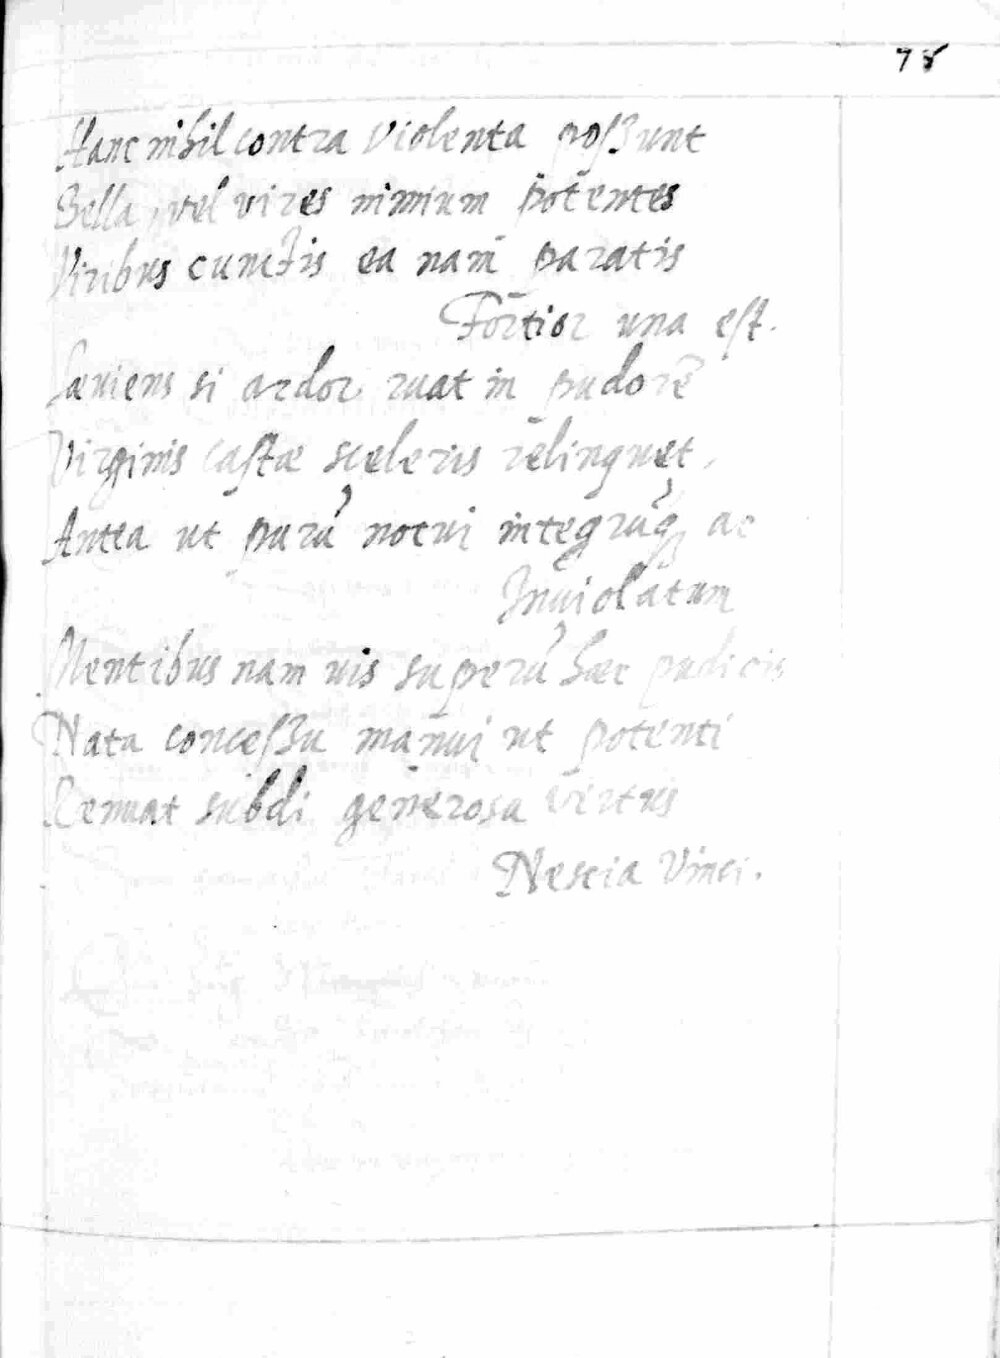 78
Hanc nihil contra violenta possunt
Bella, vel vires nimium potentes
Viribus cunctis ea nam paratis
Fortior una est.
Sæviens si ardor ruat in pudorē
Virginis castæ sceleris relinquet,
Antea ut purū notui integrūq; ac
Inuiolatum
Mentibus nam uis superū hæc pudicis
Nata concessu manui ut potenti
Renuat subdi generosa vertus
Nescia Vinci.